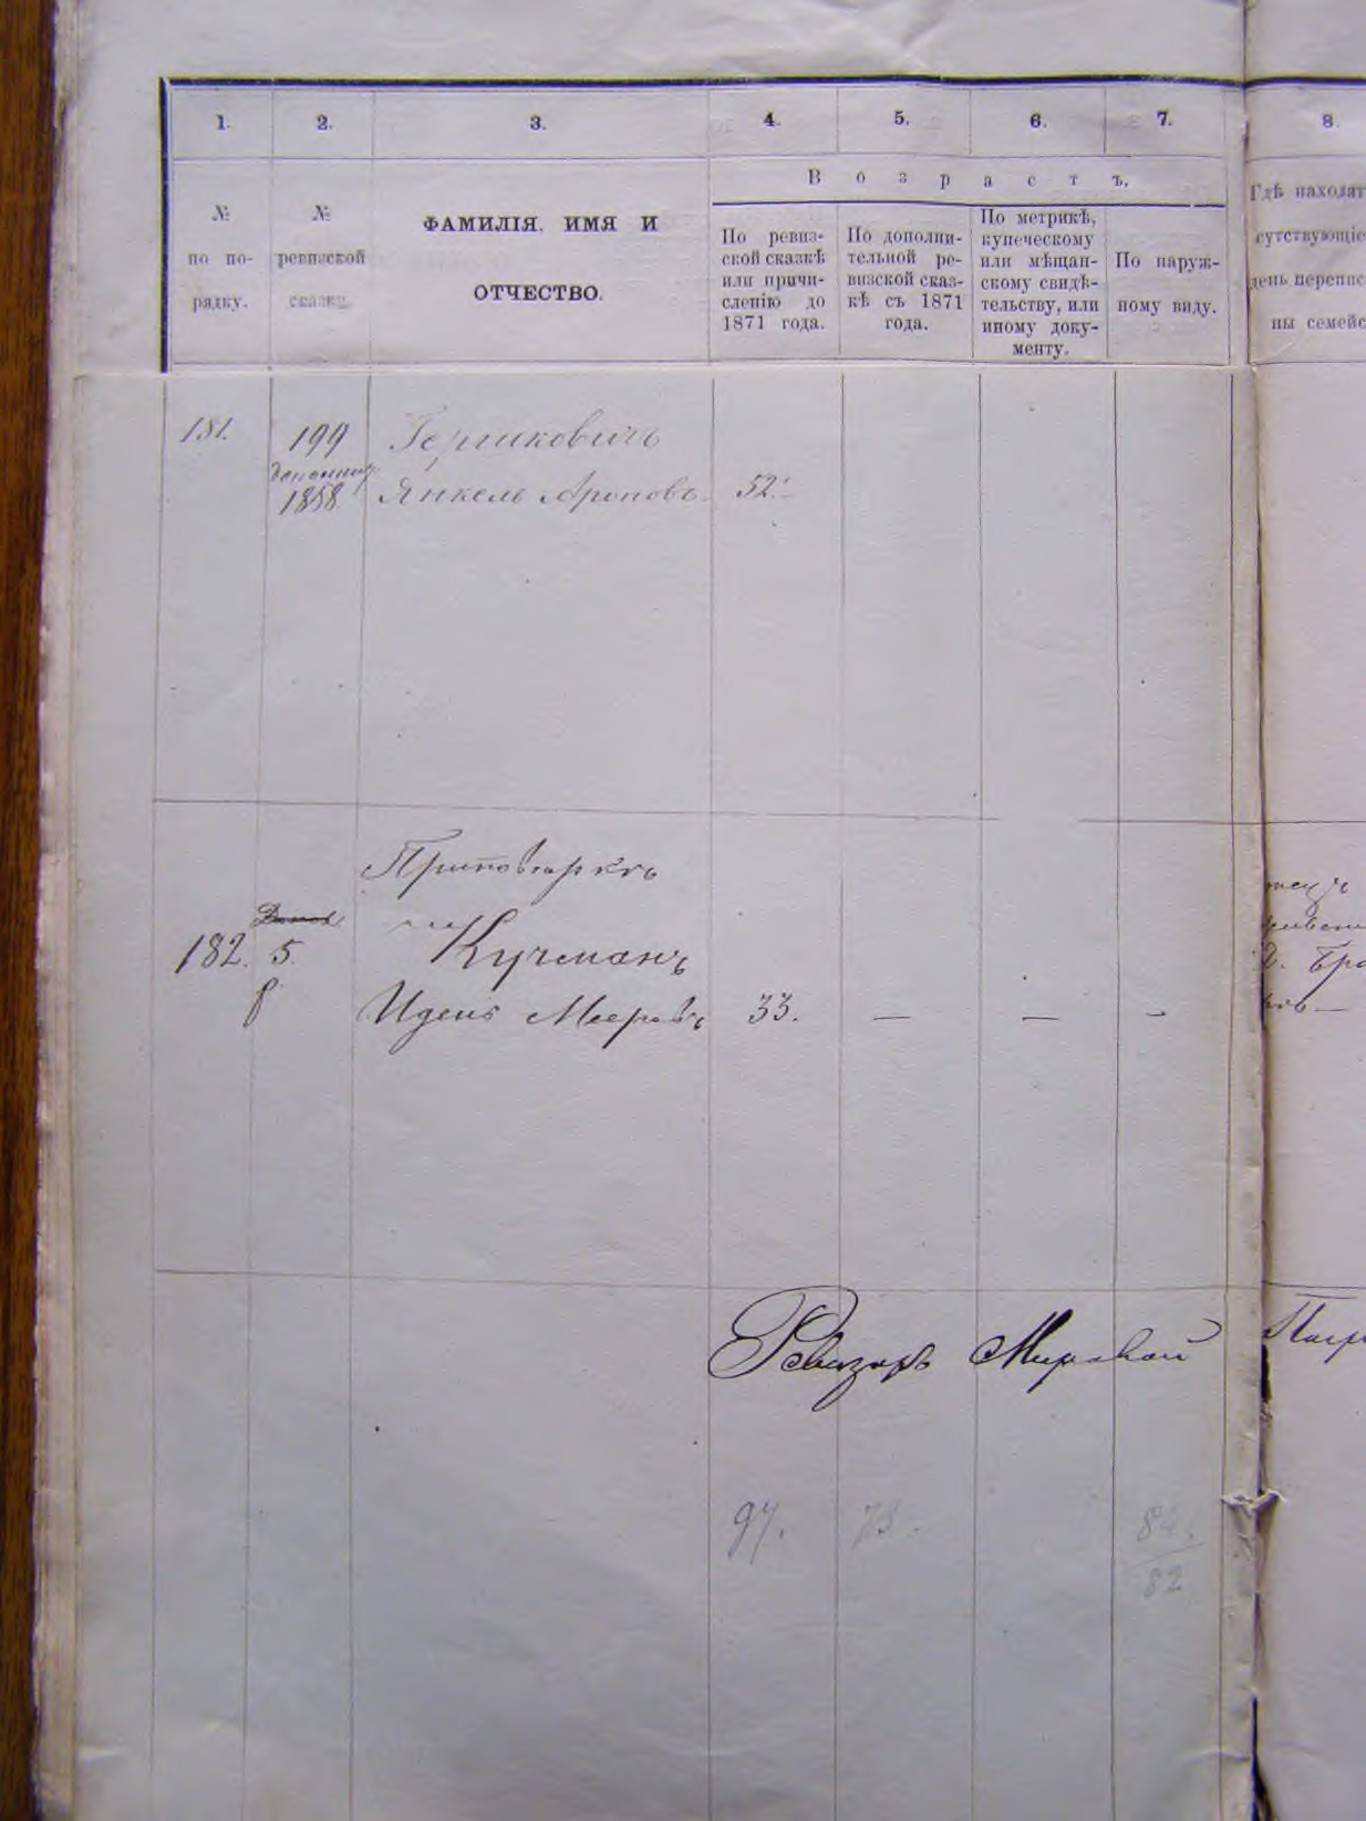 1. 2. 3. 4. 5. 6. 7. 8.
Возрастъ.
№ по по- рядку.
№ ревизской сказки.
ФАМИЛІЯ, ИМЯ И
ОТЧЕСТВО.
По ревиз-
ской сказкѣ
или причи-
сленію до
1871 года.
По дополни-
тельной ре-
визской сказ-
кѣ съ 1871
года.
По метрикѣ,
купеческому
или мѣщан-
скому свидѣ-
тельству, или
иному доку-
менту.
По наруж-
ному виду.
Гдѣ находят
сутствующіе
день перепис
ны семейс
181. 199 Гершковичъ
1858 Янкель Ароновъ 52.
182. 5. Кучманъ
Идель Мееровъ 33. — — —
Ревизоръ Мировой
97. 82